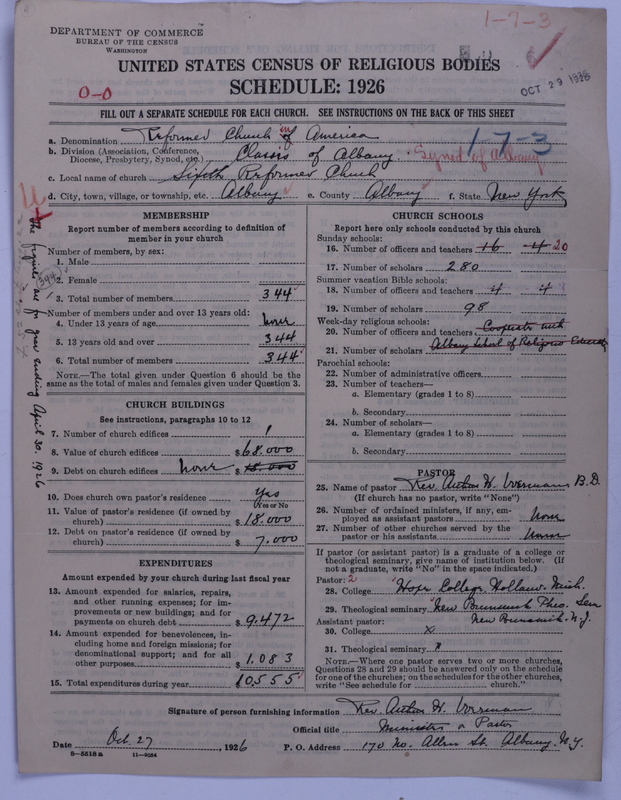 1-7-3
DEPARTMENT OF COMMERCE
BUREAU OF THE CENSUS
WASHINGTON
OCT 29 1926
UNITED STATES CENSUS OF RELIGIOUS BODIES
SCHEDULE: 1926
0-0
FILL OUT A SEPARATE SCHEDULE FOR EACH CHURCH. SEE INSTRUCTIONS ON THE BACK OF THIS SHEET
a. Denomination Reformed Church in America
1-7-3
b. Division (Association, Conference, Diocese, Presbytery, Synod, etc.) Classis of Albany. Synod of Albany
c. Local name of church Sixth Reformed Church
d. City, town, village, or township, etc. Albany e. County Albany f. State New York
The figures are for year ending April 30, 1926
MEMBERSHIP
Report number of members according to definition of member in your church
Number of members, by sex:
1. Male
2. Female
(344)
3. Total number of members 344
Number of members under and over 13 years old:
4. Under 13 years of age none
5. 13 years old and over 344
6. Total number of members 344
NOTE.—The total given under Question 6 should be the same as the total of males and females given under Question 3.
CHURCH BUILDINGS
See instructions, paragraphs 10 to 12
7. Number of church edifices 1
8. Value of church edifices $68.000
9. Debt on church edifices none $18.000
10. Does church own pastor's residence Yes
(Yes or No
11. Value of pastor's residence (if owned by church) $18.000
12. Debt on pastor's residence (if owned by church) $7.000
EXPENDITURES
Amount expended by your church during last fiscal year
13. Amount expended for salaries, repairs, and other running expenses; for improvements or new buildings; and for payments on church debt $9.472
14. Amount expended for benevolences, including home and foreign missions; for denominational support; and for all other purposes $1.083
15. Total expenditures during year 10555
CHURCH SCHOOLS
Report here only schools conducted by this church
Sunday schools:
16. Number of officers and teachers 16 4 20
17. Number of scholars 280
Summer vacation Bible schools:
18. Number of officers and teachers 4 4
19. Number of scholars 98
Week-day religious schools:
20. Number of officers and teachers Cooperate with
21. Number of scholars Albany School of Religious Education
Parochial schools:
22. Number of administrative officers
23. Number of teachers—
a. Elementary (grades 1 to 8)
b. Secondary
24. Number of scholars—
a. Elementary (grades 1 to 8)
b. Secondary
PASTOR
25. Name of pastor Rev. Arthur H. Voerman B.D.
(If church has no pastor, write "None")
26. Number of ordained ministers, if any, employed as assistant pastors none
27. Number of other churches served by the pastor or his assistants none
If pastor (or assistant pastor) is a graduate of a college or theological seminary, give name of institution below. (If not a graduate, write "No" in the space indicated.)
Pastor: 2
28. College Hope College Holland. Mich.
29. Theological seminary New Brunswick Theo. Sem
Assistant pastor: New Brunswick. N.J.
30. College x
31. Theological seminary x
NOTE.—Where one pastor serves two or more churches, Questions 28 and 29 should be answered only on the schedule for one of the churches; on the schedules of the other churches, write "See schedule for church."
Signature of person furnishing information Rev. Arthur H. Voerman
Official title Minister or Pastor
Date Oct. 27, 1926 P. O. Address 170 No. Allen St. Albany. N.Y.
8—5518 a 11—9254